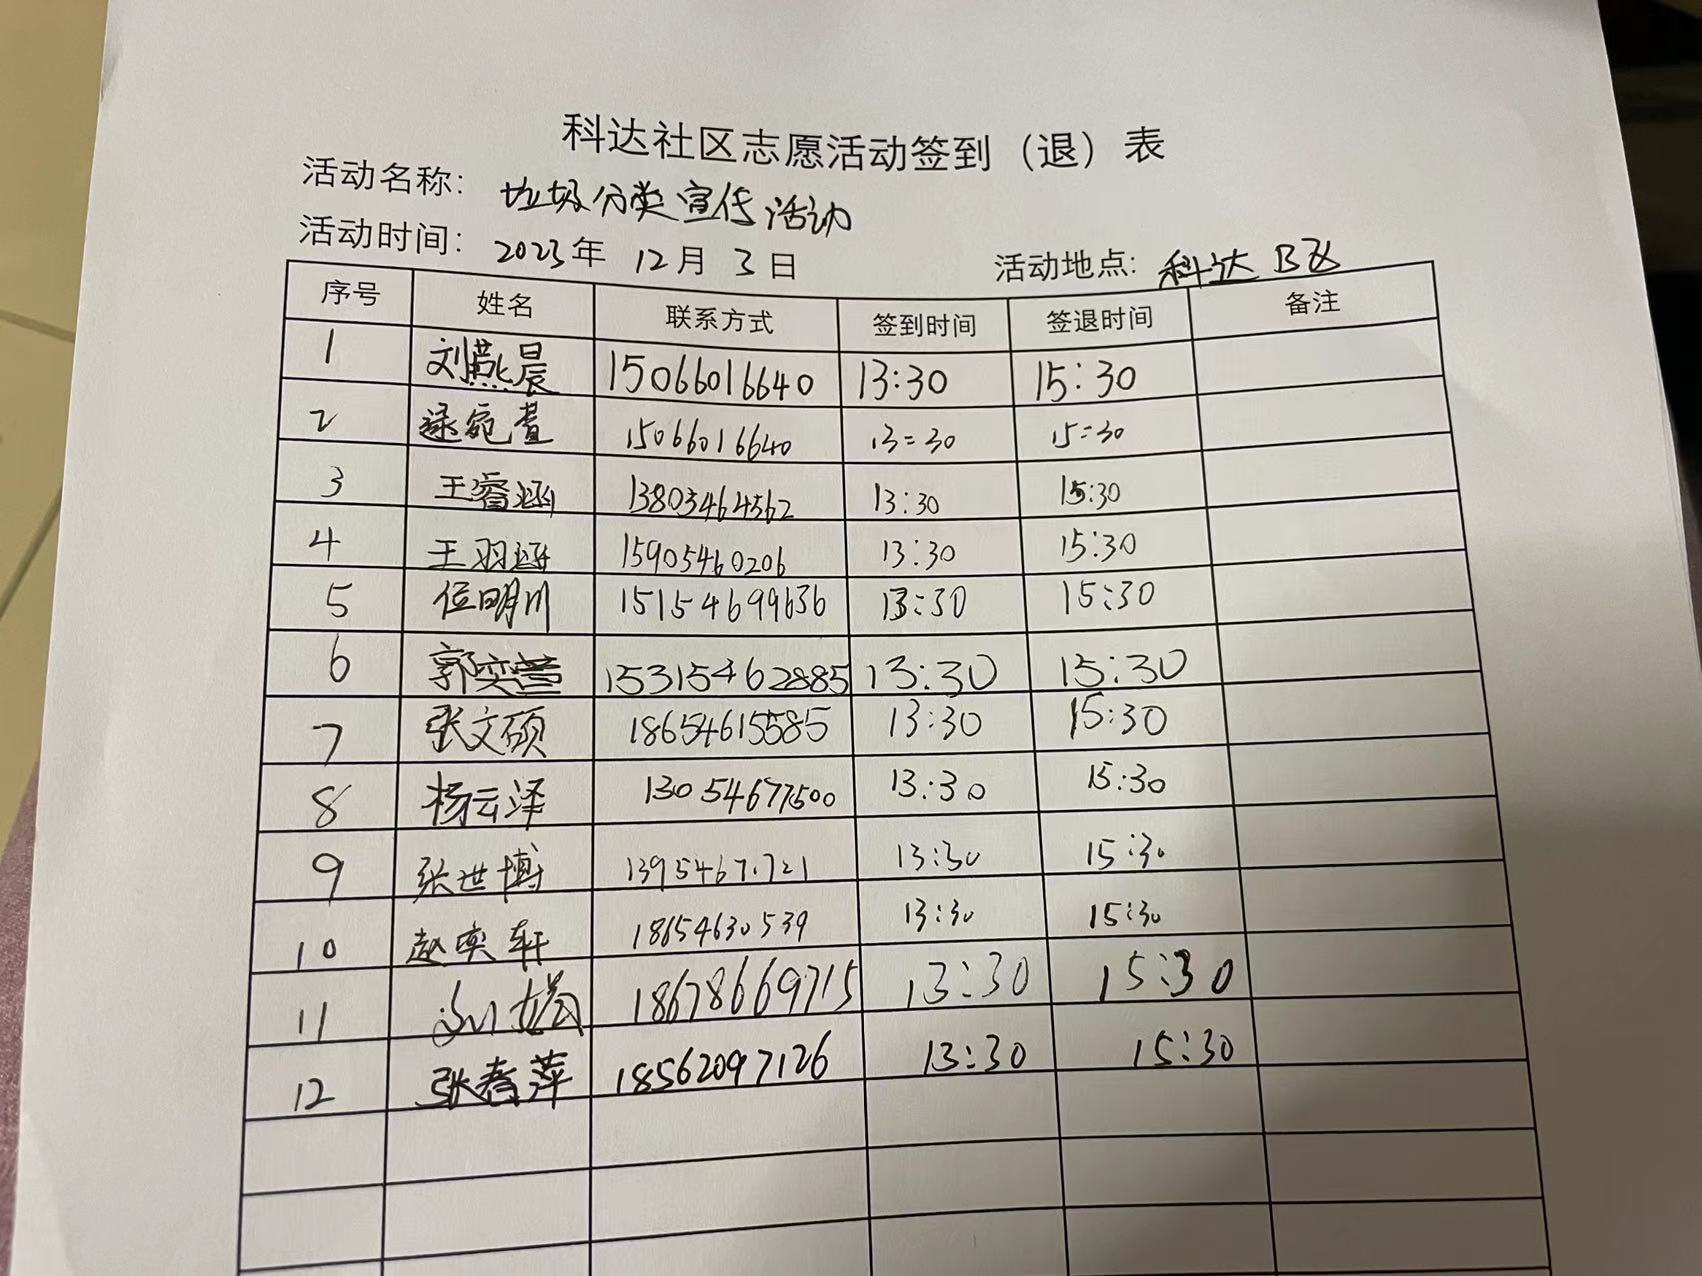 科达社区志愿活动签到（退）表
活动名称：垃圾分类宣传活动
活动时间：2023年 12月 3日 活动地点：科达B区
序号 姓名 联系方式 签到时间 签退时间 备注
1 刘燕晨 15066016640 13:30 15:30
2 逯宛萱 15066016640 13:30 15:30
3 王睿涵 13803464562 13:30 15:30
4 王羽涵 15905460206 13:30 15:30
5 位明川 15154699636 13:30 15:30
6 郭奕萱 15315462885 13:30 15:30
7 张文硕 18654615585 13:30 15:30
8 杨云泽 13054677500 13:30 15:30
9 张世博 13:30 15:30
10 赵奕轩 18654630539 13:30 15:30
11 18678669715 13:30 15:30
12 张春萍 18562097126 13:30 15:30